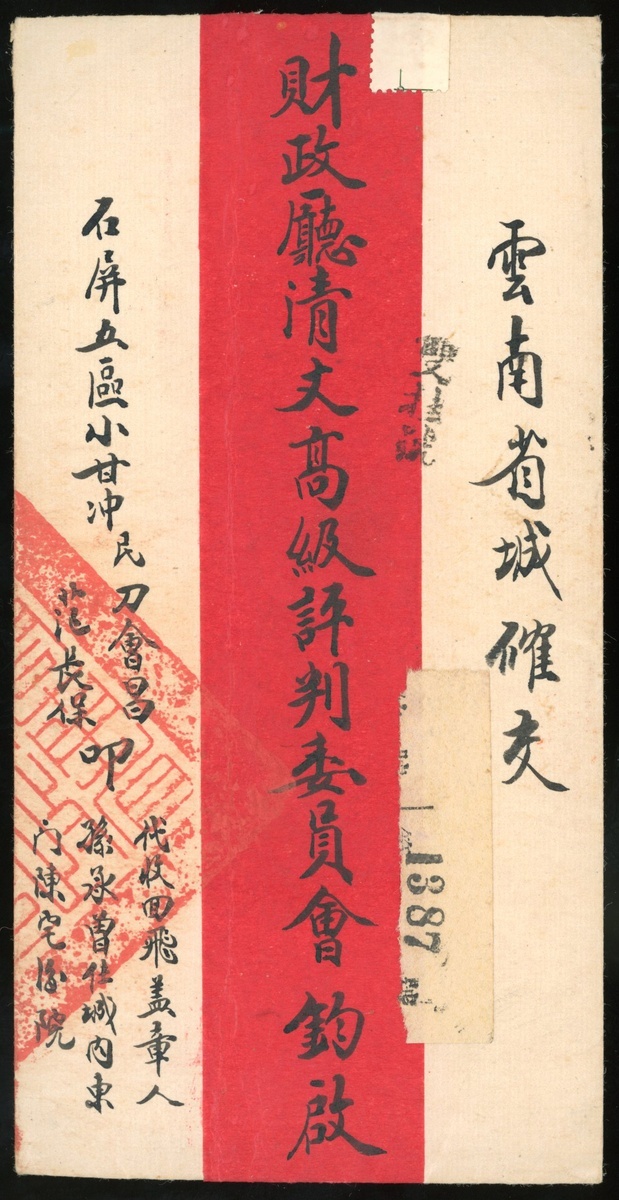 雲南省城確交
雙掛號
1387
財政廳清丈高級評判委員會鈞啟
石屏五區小甘冲民刀會昌
范長保
叩
代收回飛蓋章人
孫承曾住城內東
门陳宅後院